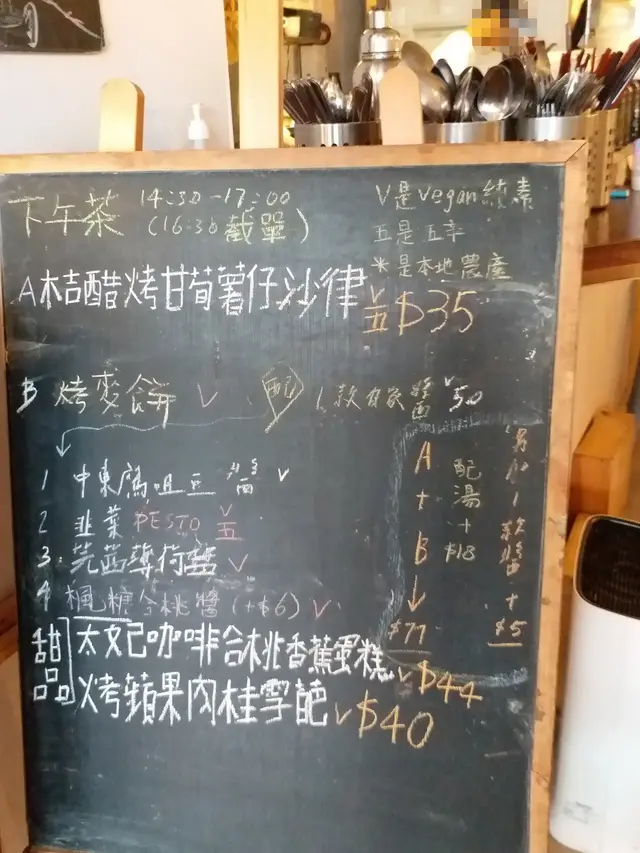 下午茶 14:30-17:00
(16:30 截單)
V是vegan純素
五是五辛
米是本地農產
A桔醋烤甘荀薯仔沙律 V 五 $35
B 烤麥餅 V 配 1款自家醬 V 50
1 中東鷹咀豆醬 V
2 韭菜 PESTO V 五
3. 芫茜薄荷醬 V
4 楓糖合桃醬 (+$6) V
A + B ↓ $77
配湯 + $18
另加1款醬 + $5
甜品 太妃咖啡合桃香蕉蛋糕 V $44
烤蘋果肉桂雪葩 V $40